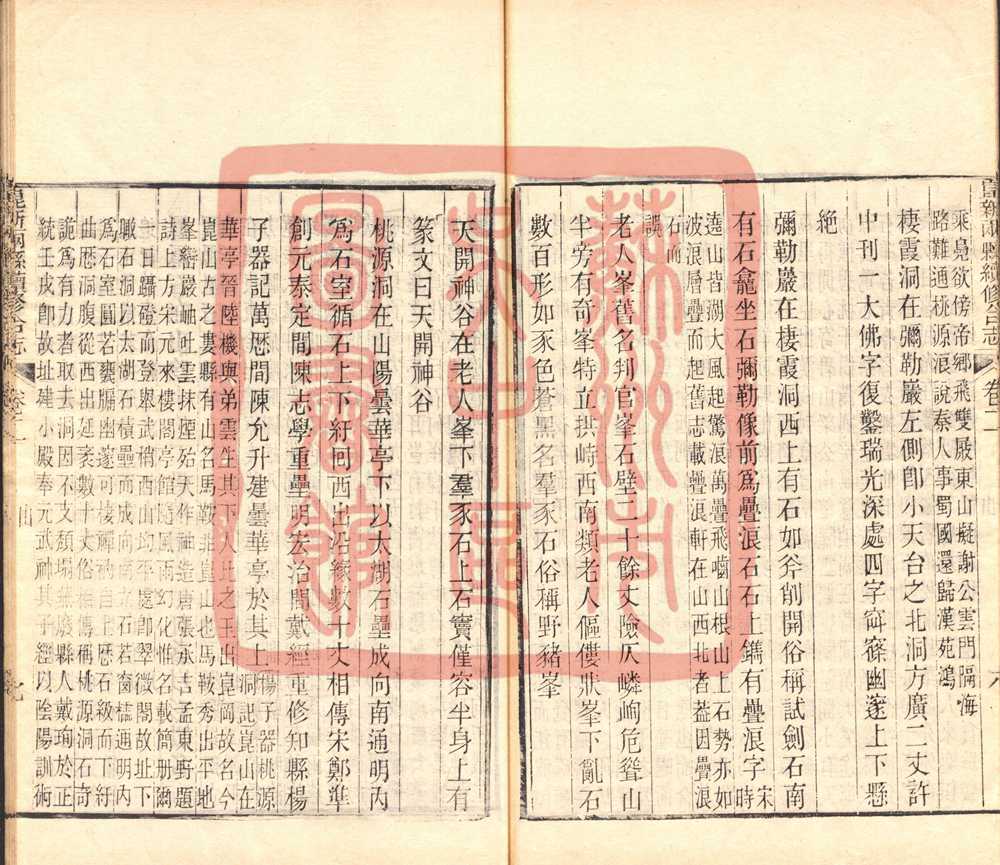 乘鳧欲傍帝鄉飛雙屐東山擬謝公雲門隔海
路難通桃源浪說秦人事蜀國還歸漢苑鴻
棲霞洞在彌勒巖左側卽小天台之北洞方廣二丈許
中刊一大佛字復鑿瑞光深處四字窅篠幽邃上下懸
絶
彌勒巖在棲霞洞西上有石如斧削開俗稱試劍石南
有石龕坐石彌勒像前爲疊浪石石上鐫有疊浪字宋時
遶山皆湖大風起驚浪萬疊飛嚙山根山上石勢亦如
波浪層疊而起舊志載疊浪軒在山西北者葢因疊浪
石而
誤
老人峯舊名判官峯石壁二十餘丈險仄嶙峋危聳山
半旁有奇峯特立拱峙西南類老人傴僂狀峯下亂石
數百形如豕色蒼黑名羣豕石俗稱野豬峯
天開神谷在老人峯下羣豕石上石竇僅容半身上有
篆文曰天開神谷
桃源洞在山陽曇華亭下以太湖石壘成向南通明內
爲石室循石上下紆囘西出沿緣數十丈相傳宋鄭準
創元泰定間陳志學重壘明宏治間戴經重修知縣楊
子器記萬厯間陳允升建曇華亭於其上楊子器桃源
洞記崑山在
華亭晉陸機與弟雲生其下人比之玉出崑岡故名今
崑山古之婁縣有山名馬鞍非崑山也馬鞍秀出平地
峯巒巖岫吐雲抹煙殆天作神造唐張承吉孟東野題
詩上方宋元來樓閣亭館隨風雨幻化惟名載簡册爾
一日躡磴而登舉武梢西山均平處卽翠微閣故址下
瞰石洞以太湖石積壘而成向南立石若窗櫺通明內
爲石室圓若甕牖幽邃可棲解自上歷石級而下紆
曲厯洞腹從西出延袤數十丈俗相傳稱桃源洞石奇
詭爲有力者取去洞因不支頹塌蕪廢縣人戴珣於正
統壬戌卽故址建小殿奉元武神其子經以陰陽訓術